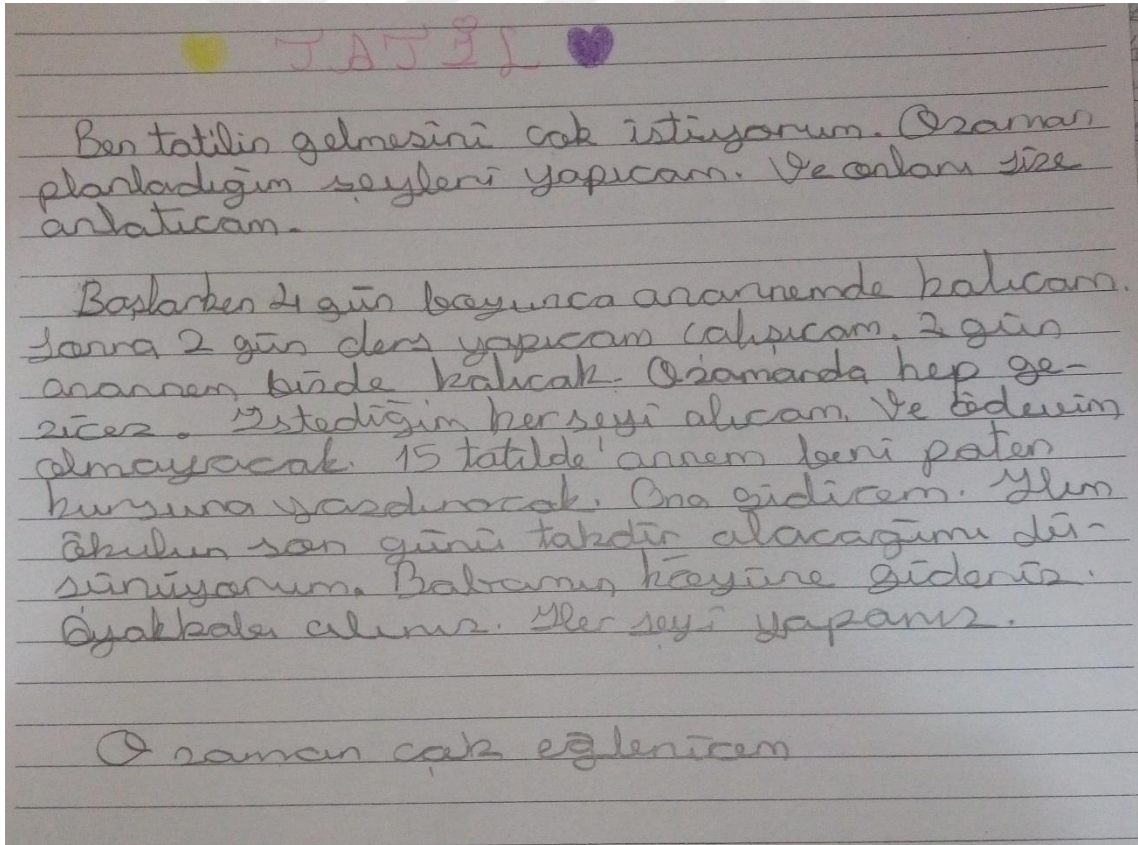 TATİL
Ben tatilin gelmesini cok istiyorum. Ozaman
planladığım şeyleri yapıcam. Ve onları size
anlatıcam.
Başlarken 4 gün boyunca anannemde kalıcam.
Sonra 2 gün ders yapıcam calışıcam. 2 gün
anannem bizde kalıcak. Ozamanda hep ge-
zicez. İstediğim herseyi alıcam. Ve ödevim
olmayacak. 15 tatilde annem beni paten
kursuna yazdırıcak. Ona gidicem.
okulun son günü takdir alacağımı dü-
sünüyorum. Babamın köyüne gideriz.
Ayakkabı alırız. Her şeyi yaparız.
O zaman çok eğlenicem